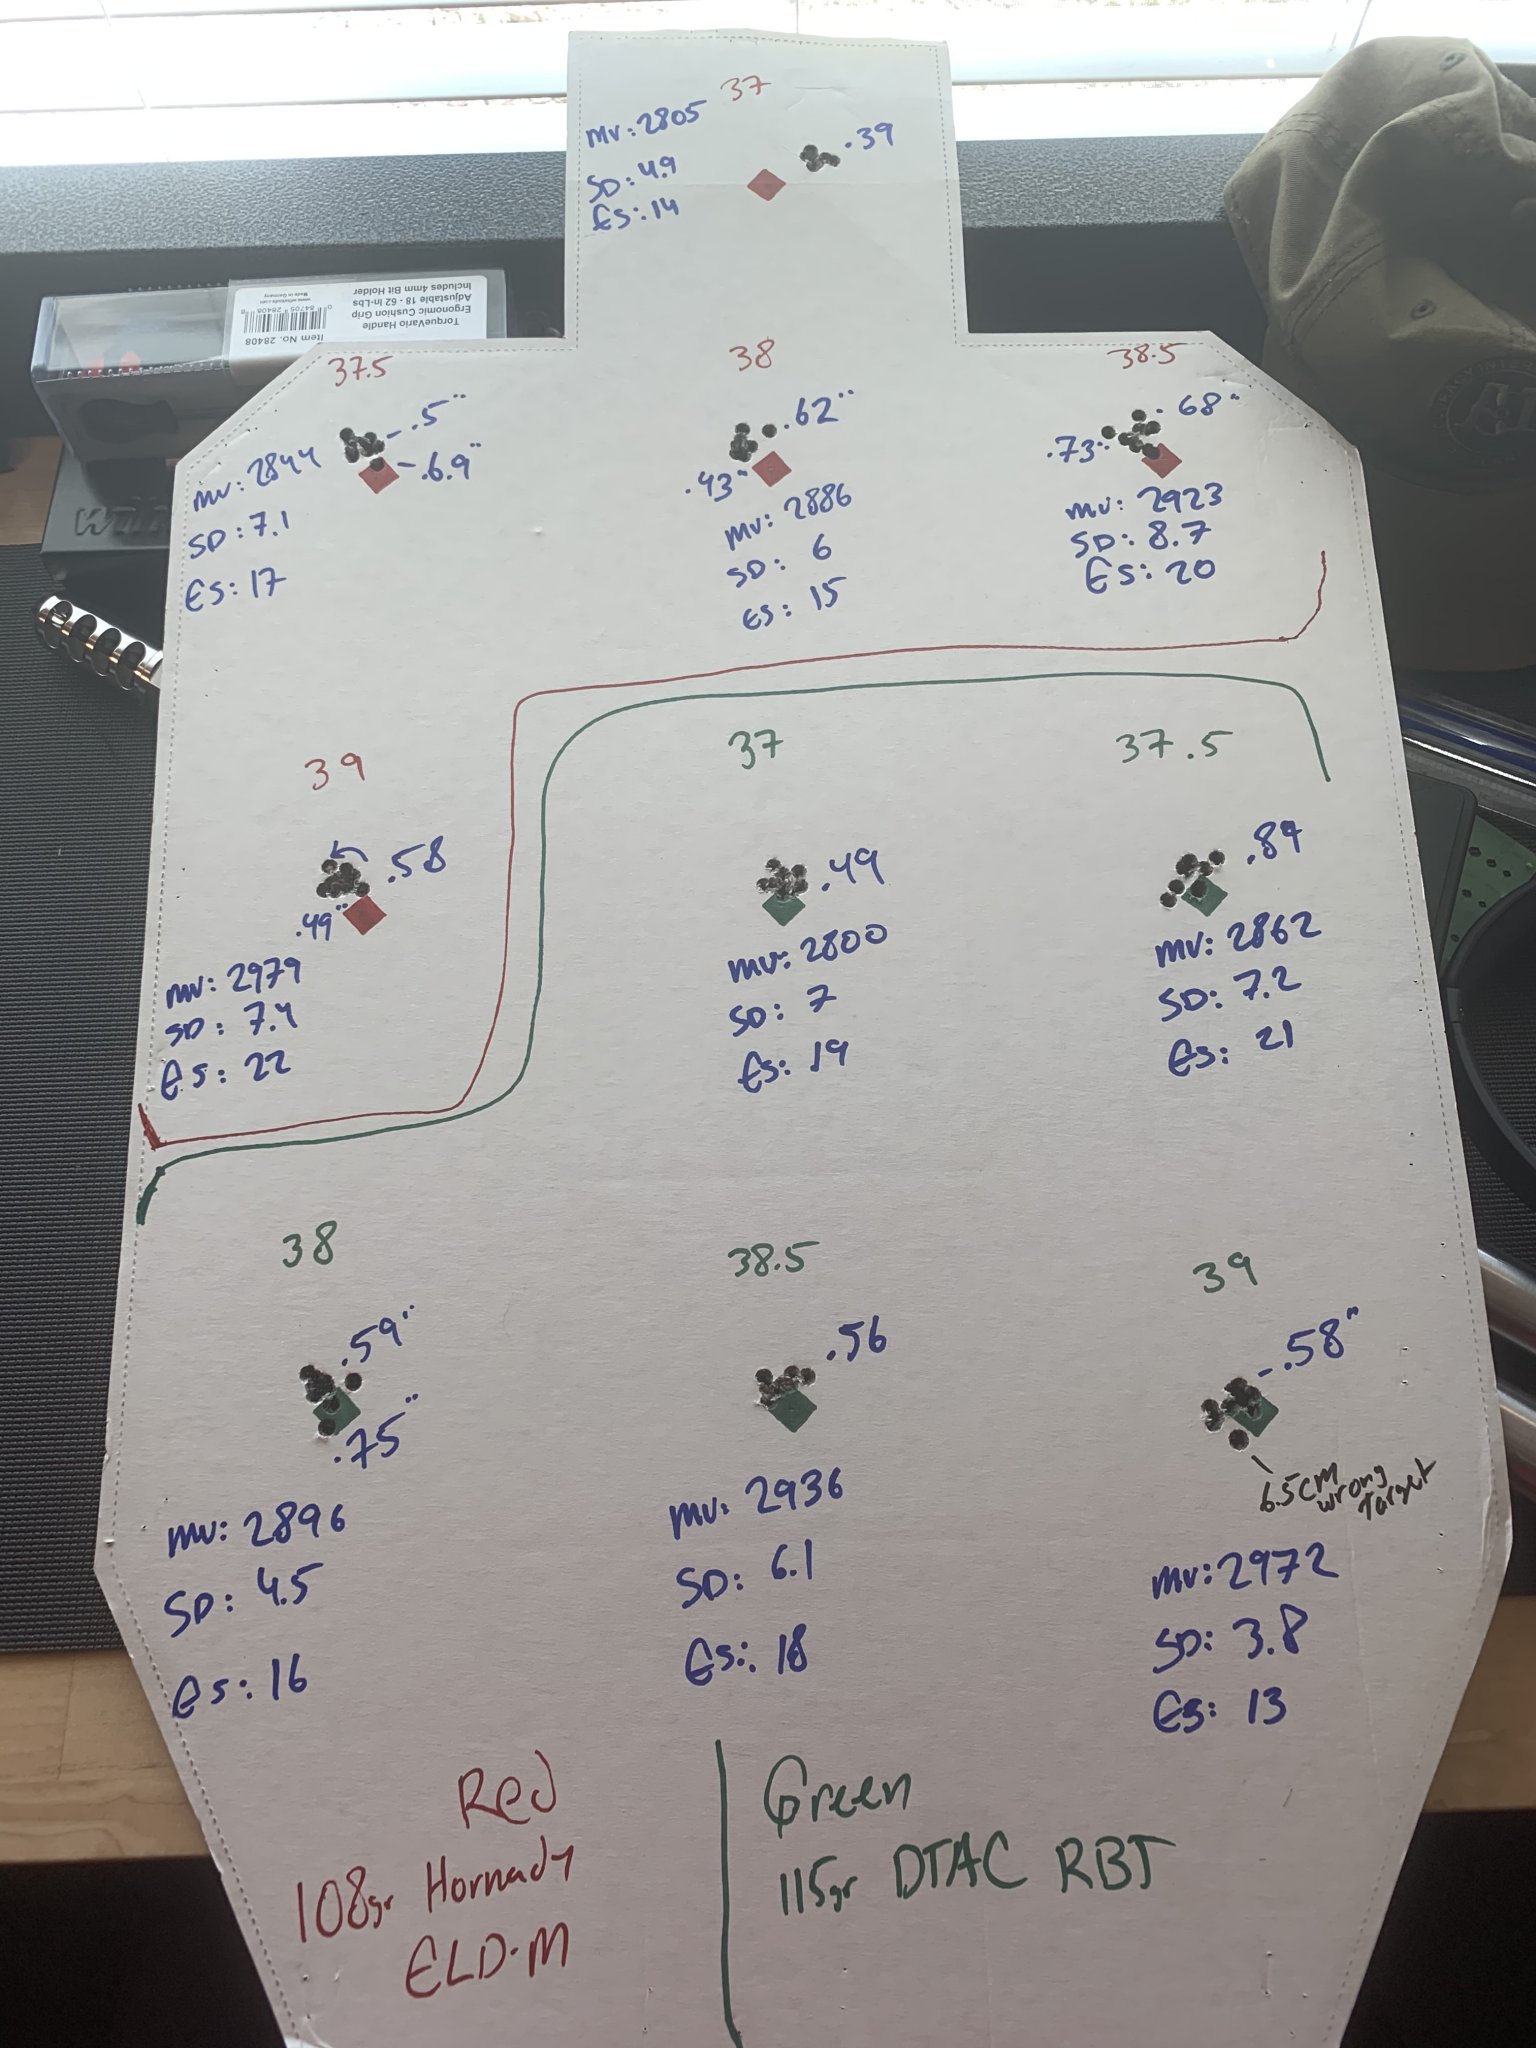 37
mv: 2805
SD: 4.9
ES: 14
.39
Item No. 28408
TorqueVario Handle
Ergonomic Cushion Grip
Adjustable 18 - 62 In-Lbs
Includes 4mm Bit Holder
Made in Germany
37.5
.5"
.6.9"
mv: 2844
SD: 7.1
ES: 17
38
.62"
.43"
mv: 2886
SD: 6
ES: 15
38.5
.68"
.73
mv: 2923
SD: 8.7
ES: 20
39
.58
.49"
mv: 2979
SD: 7.4
ES: 22
37
.49
mv: 2800
SD: 7
ES: 19
37.5
.89
mv: 2862
SD: 7.2
ES: 21
38
.59"
.75"
mv: 2896
SD: 4.5
ES: 16
38.5
.56
mv: 2936
SD: 6.1
ES: 18
39
.58"
6.5CM
wrong
Target
mv: 2972
SD: 3.8
ES: 13
Red
108gr Hornady
ELD-M
Green
115gr DTAC RBT